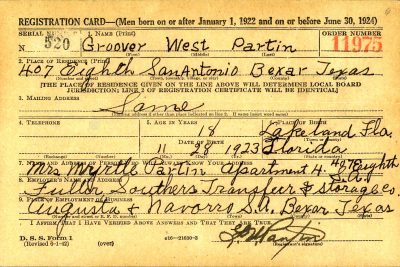 REGISTRATION CARD—(Men born on or after January 1, 1922 and on or before June 30, 1924)
SERIAL NUMBER 1. NAME (Print) ORDER NUMBER
N 520 Groover West Partin 11975
2. PLACE OF RESIDENCE (Print)
407 Eighth San Antonio Bexar Texas
[THE PLACE OF RESIDENCE GIVEN ON THE LINE ABOVE WILL DETERMINE LOCAL BOARD
JURISDICTION; LINE 2 OF REGISTRATION CERTIFICATE WILL BE IDENTICAL]
3. MAILING ADDRESS
Same
[Mailing address if other than place indicated on line 2. If same insert word same]
4. TELEPHONE 5. AGE IN YEARS 6. PLACE OF BIRTH
18 Lakeland Fla
DATE OF BIRTH
11 28 1923 Florida
(Exchange) (Number) (Mo.) (Day) (Yr.) (State or country)
7. NAME AND ADDRESS OF PERSON WHO WILL ALWAYS KNOW YOUR ADDRESS
Mrs Myrtle Partin Apartment 4. 407 Eighth S.A.
8. EMPLOYER'S NAME AND ADDRESS
Southers Transfer & Storage Co.
9. PLACE OF EMPLOYMENT OR BUSINESS
Augusta & Navarro S.A. Bexar Texas
I AFFIRM THAT I HAVE VERIFIED ABOVE ANSWERS AND THAT THEY ARE TRUE.
D. S. S. Form 1
(Revised 6-1-42) (over) 16—21630-2